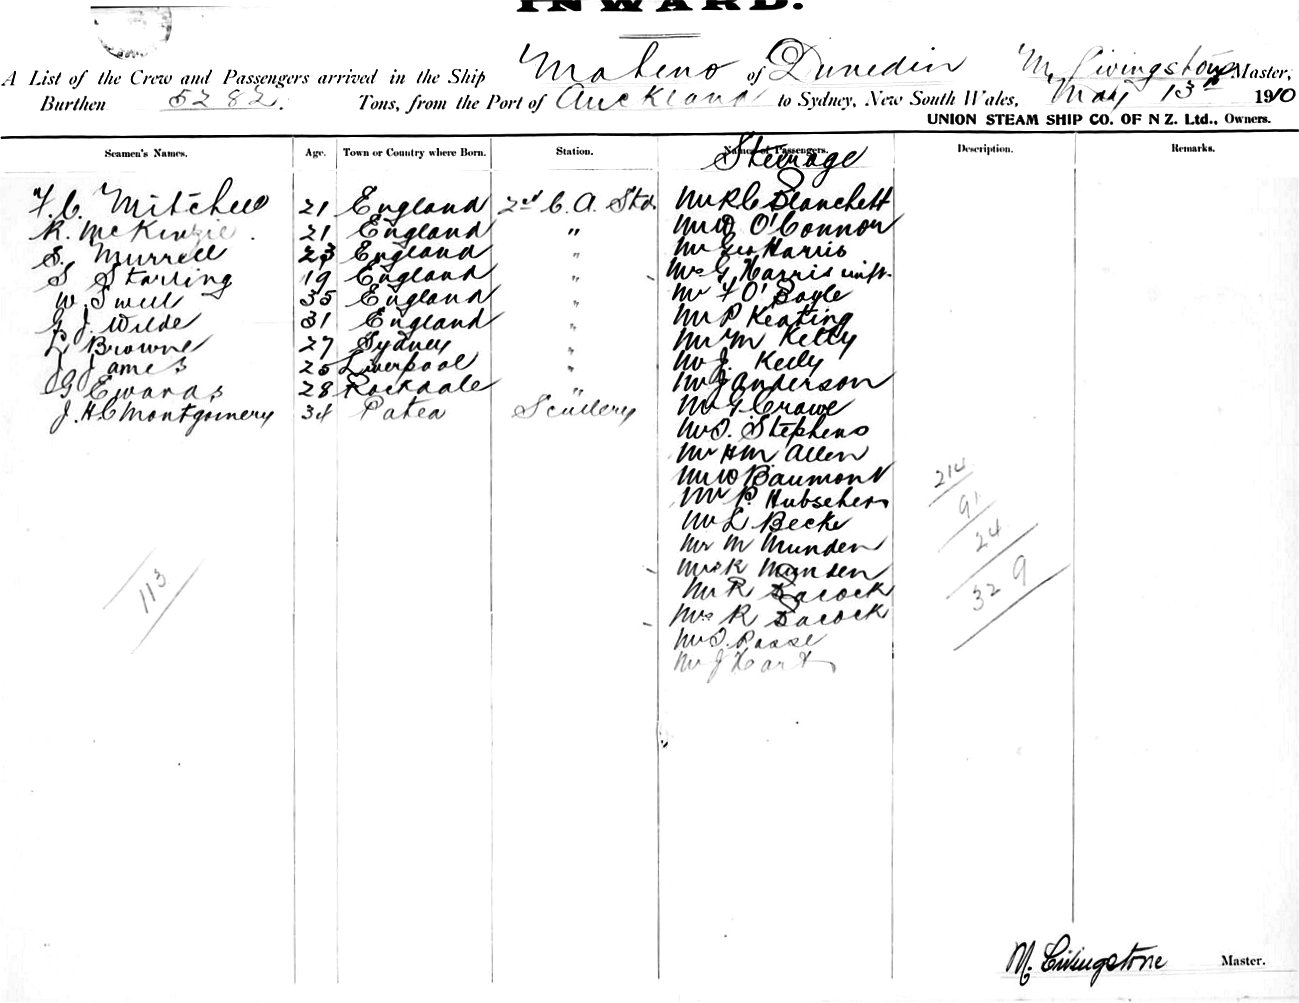 INWARD.
A List of the Crew and Passengers arrived in the Ship Mateno of Dunedin M. Livingstone Master,
Burthen 5282. Tons, from the Port of Auckland to Sydney, New South Wales, May 13th 1910
UNION STEAM SHIP CO. OF N Z. Ltd., Owners.
Seamen's Names. Age. Town or Country where Born. Station. Names of Passengers. Description. Remarks.
Steerage
F. C. Mitchell 21 England 2nd C. A. Std. Mr R C Blanchett
R. McKenzie 21 England " Mr D O'Connor
S. Murrell 23 England " Mr Geo Harris
S Starling 19 England " Mrs G Harris inft.
W. Swell 35 England " Mr F O'Boyle
G J. Wilde 31 England " Mr P Keating
L Browne 27 Sydney " Mr M Kelly
J James 25 Liverpool " Mr J. Kelly
G Ewards 28 Rockdale " Mr J Anderson
J. H. C Montgomery 34 Patea Scullery Mr G Crawe
Mr T. Stephens
Mr H M Allen
Mr W Baumont
Mr P. Hubschers
Mr L Becke
Mr M Munden
Mrs R Munden
Mr R Sacock
Mrs R Sacock
Mr T. Passe
Mr J Hart
214
91
24
329
113
M. Livingstone Master.